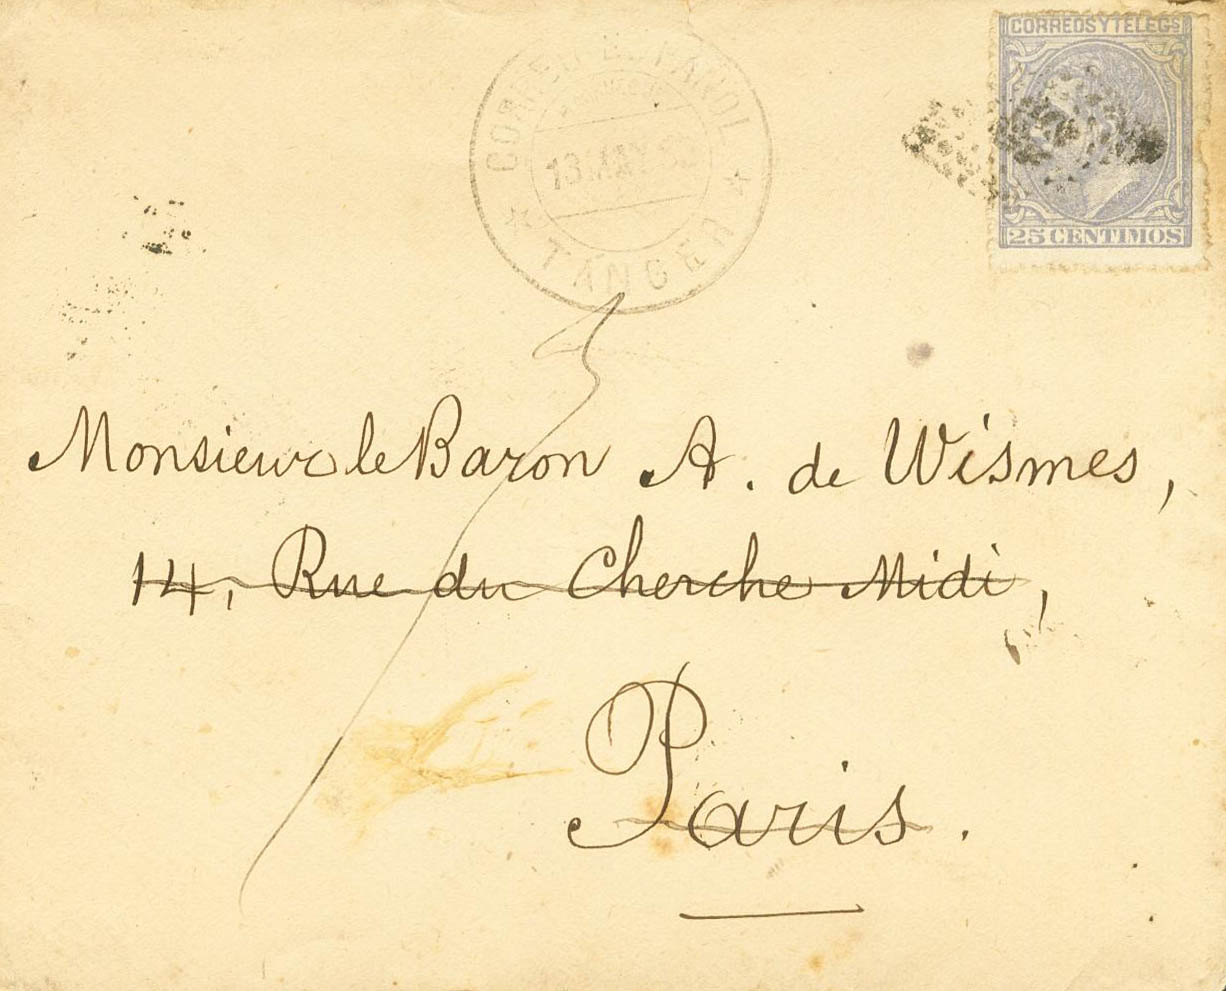 CORREOS Y TELEGS
25 CENTIMOS
CORREO ESPAÑOL
TANGER
Monsieur le Baron A. de Wismes,
14, Rue du Cherche Midi,
Paris.